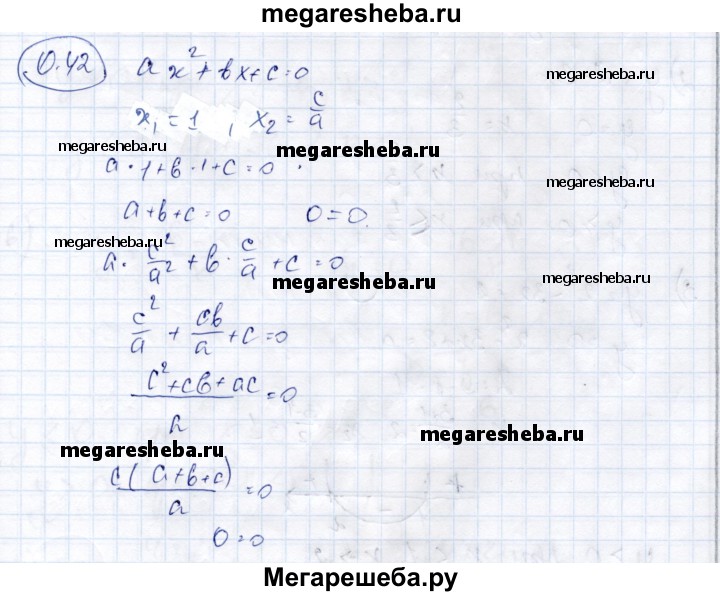 megaresheba.ru
0.42 ax² + bx + c = 0
megaresheba.ru
x₁ = 1 , x₂ = c/a
megaresheba.ru
megaresheba.ru
a · 1 + b · 1 + c = 0
megaresheba.ru
a + b + c = 0 0 = 0.
megaresheba.ru
a · c²/a² + b · c/a + c = 0
megaresheba.ru
megaresheba.ru
c²/a + cb/a + c = 0
(c² + cb + ac)/a = 0
megaresheba.ru
megaresheba.ru
c(a + b + c)/a = 0
0 = 0
Мегарешеба.ру